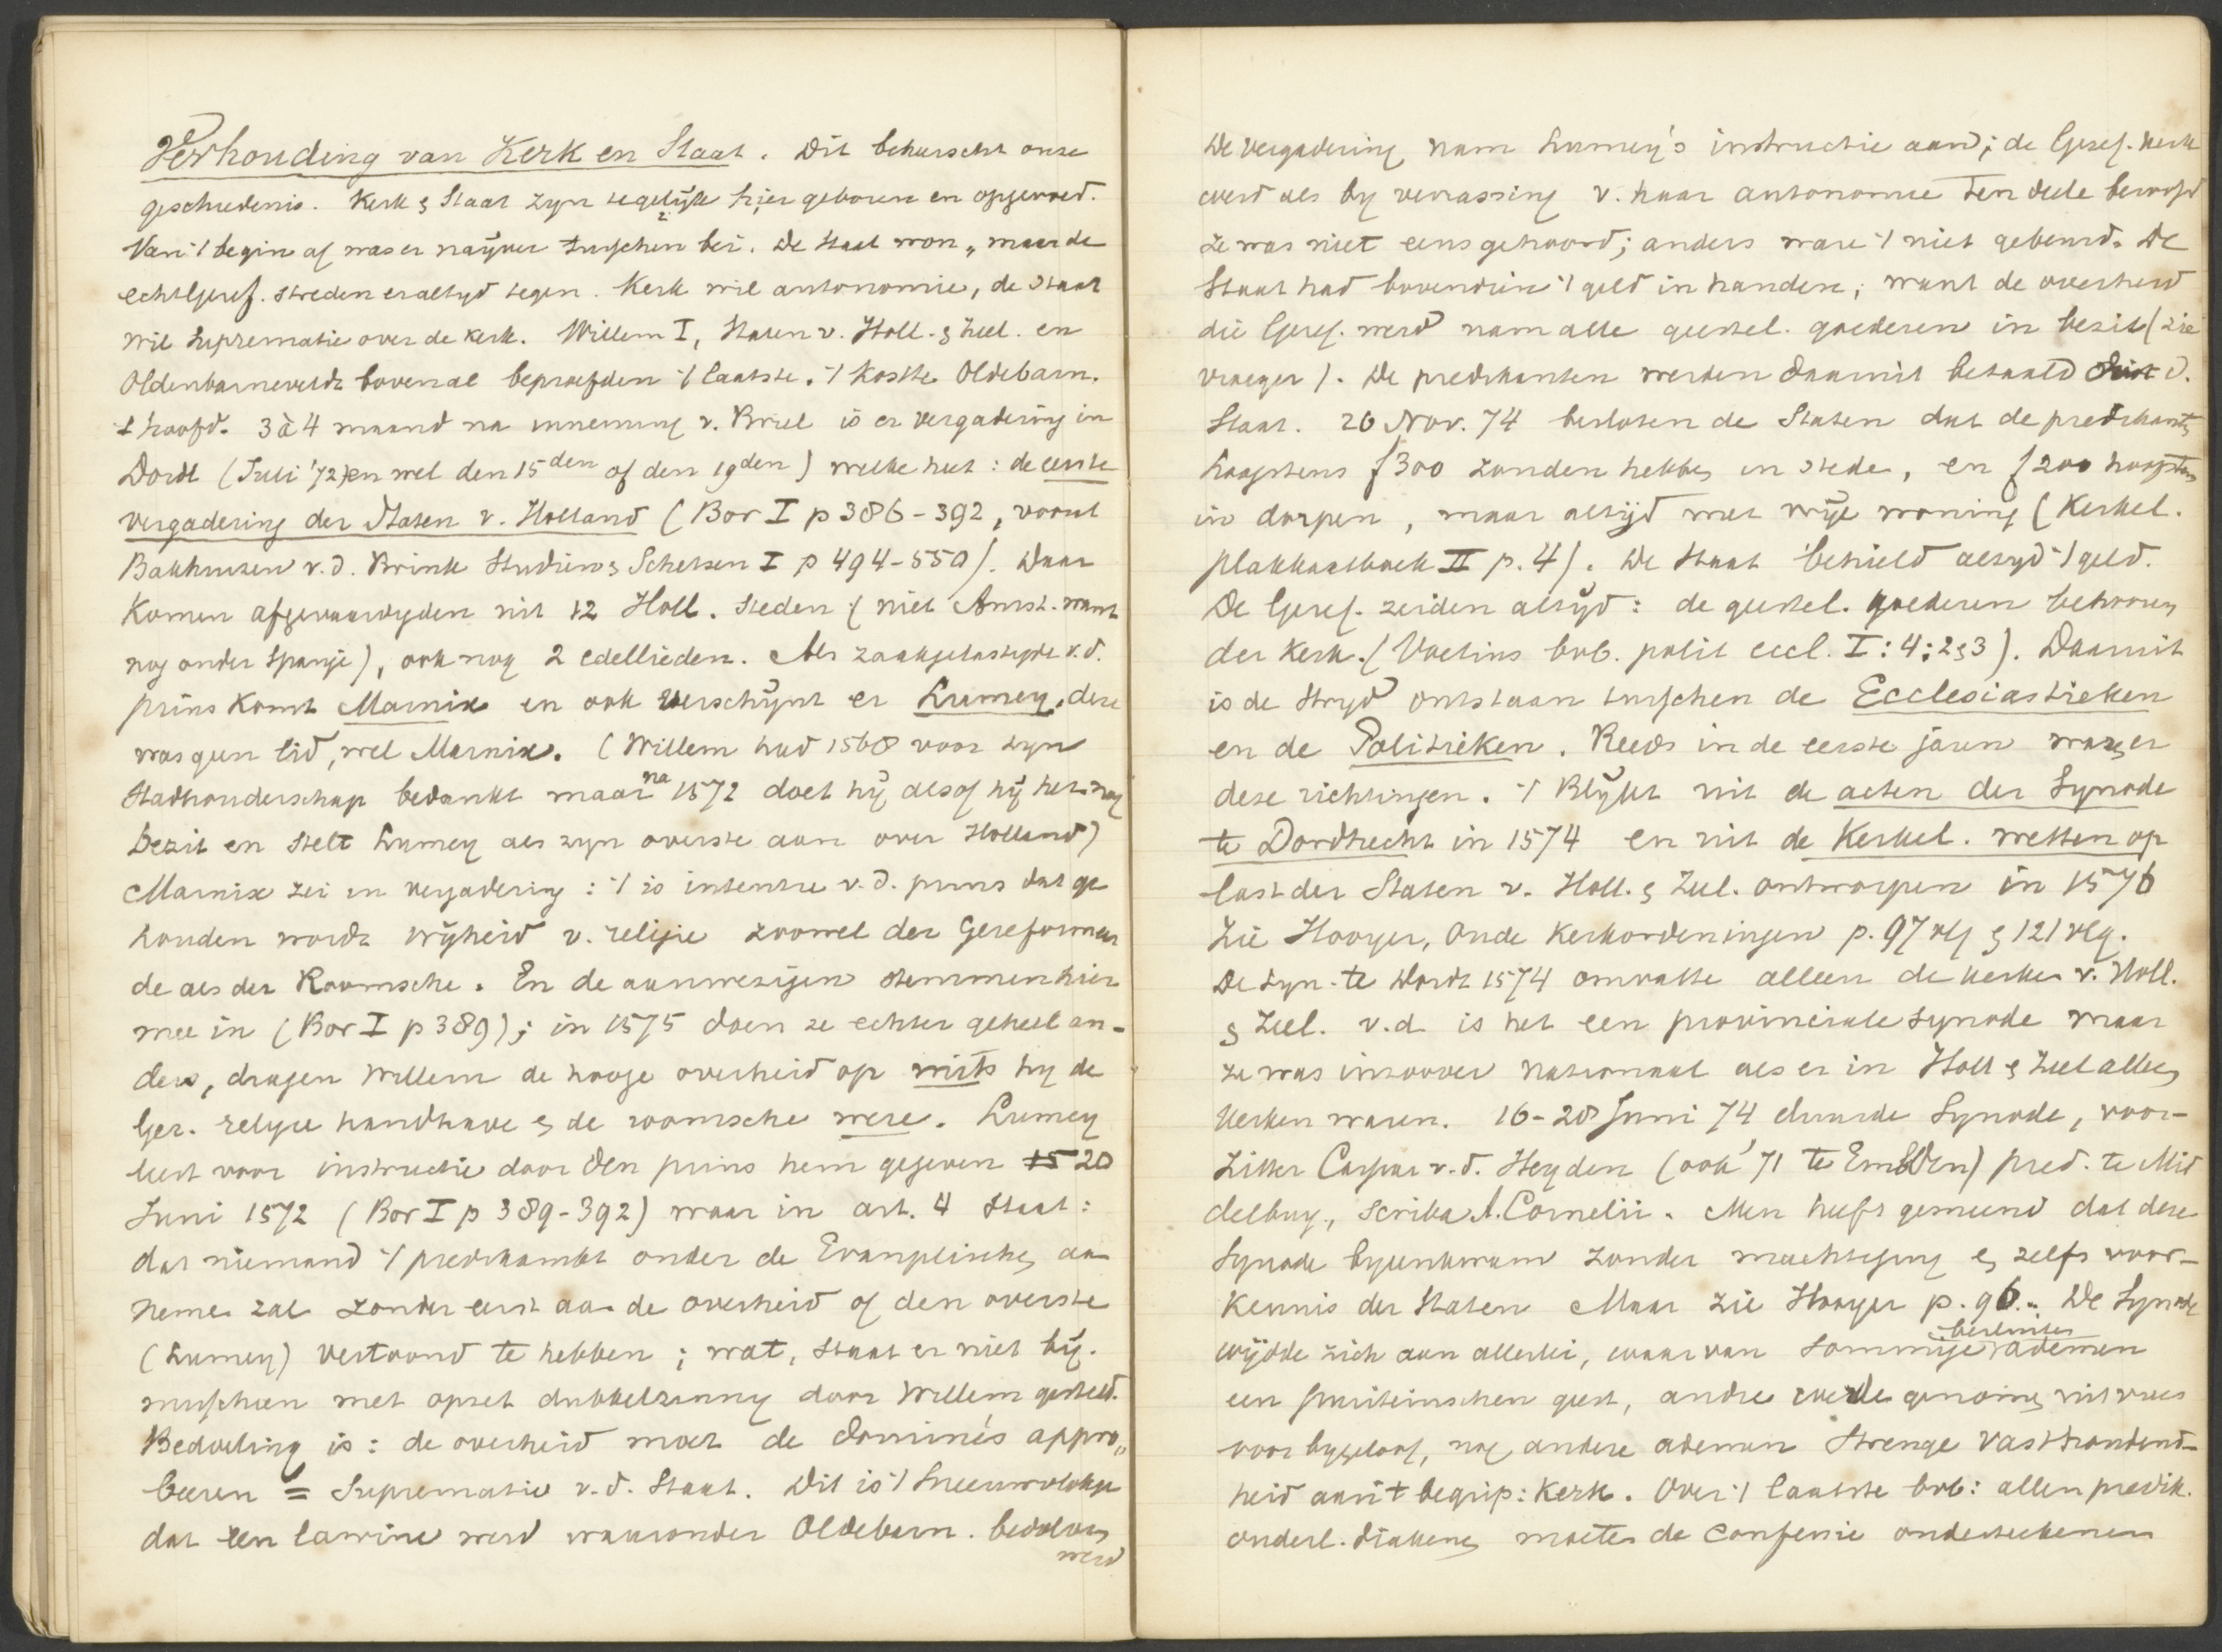 Verhouding van Kerk en Staat. Dit beheerscht onze
geschiedenis. Kerk & Staat zyn tegelijk hier geboren en opgevoed.
Van 't begin af was er naijver tusschen bei. De Staat won, maar de
echt Geref. streden er altyd tegen. Kerk wil autonomie, de Staat
wil Suprematie over de kerk. Willem I, Staten v. Holl. & Zeel. en
Oldenbarneveldt bovenal beproefden 't laatste. 't Kostte Oldebarn.
t hoofd. 3 à 4 maand na inneming v. Briel is er vergadering in
Dordt (Juli '72) en wel den 15den of den 19den) welke heet: de eerste
vergadering der Staten v. Holland (Bor I p 386-392, vooral
Bakhuizen v.d. Brink Studien & Schetsen I p 494-550). Daar
Komen afgevaardigden uit 12 Holl. Steden (niet Amst. want
nog onder Spanje), ook nog 2 edellieden. Als zaakgelastigde v.d.
prins komt Marnix en ook verschijnt er Lumey, deze
was geen lid, wel Marnix. (Willem had 1568 voor zyn
Stadhouderschap bedankt maar na 1572 doet hij alsof hij het nog
bezit en stelt Lumey als zyn overste aan over Holland)
Marnix zei in vergadering: 't is intentie v.d. prins dat ge
houden wordt vrijheid v. religie zoowel der Gereformeer
de als der Roomsche. En de aanwezigen stemmen hier
mee in (Bor I p 389); in 1575 doen ze echter geheel an-
ders, dragen Willem de hooge overheid op mits hy de
Ger. religie handhave & de roomsche were. Lumey
leest voor instructie door den prins hem gegeven 15 20
Juni 1572 (Bor I p 389-392) waar in art. 4 staat:
dat niemand 't predikambt onder de Evangelische aan
nemen zal zonder eerst aan de overheid of den overste
(Lumey) vertoond te hebben; wat, staat er niet bij.
misschien met opzet dubbelzinnig door Willem gesteld.
Bedoeling is: de overheid moet de dominés appro„
beeren = Suprematie v.d. Staat. Dit is 't Sneeuwvlokje
dat een lawine werd waaronder Oldebarn. bedolven
werd
De vergadering nam Lumey's instructie aan; de Geref. kerk
werd als by verrassing v. haar autonomie ten deele beroofd
ze was niet eens gehoord; anders ware 't niet gebeurd. De
Staat had bovendien 't geld in handen; want de overheid
die Geref. werd nam alle geestel. goederen in bezit (zie
vroeger). De predikanten werden daarmit betaald door d.
Staat. 26 Nov. 74 besloten de Staten dat de predikanten
hoogstens f 300 zouden hebben in stede, en f 200 hoogstens
in dorpen, maar altijd met vrije woning (Kerkel.
plakkaatboek II p. 4). De Staat behield altyd 't geld.
De Geref. zeiden altijd: de geestel. goederen behooren
der kerk. (Voetius bvb. polit eccl. I: 4: 2 & 3). Daaruit
is de stryd ontstaan tusschen de Ecclesiastieken
en de Politieken. Reeds in de eerste jaren waren er
deze richtingen. 't Blijkt uit de acten der Synode
te Dordrecht in 1574 en uit de Kerkel. wetten op
last der Staten v. Holl. & Zeel. ontworpen in 1576
Zie Hooyer, Oude Kerkordeningen p. 97 vlg & 121 vlg.
De Syn. te Dordt 1574 omvatte alleen de kerken v. Holl.
& Zeel. v.d. is het een provinciale synode maar
ze was insoover nationaal als er in Holl & Zeel alleen
Kerken waren. 16-28 Juni 74 duurde Synode, voor-
zitter Caspar v.d. Heyden (ook '71 te Embden) pred. te Mid
delburg, Scriba A. Cornelii. Men heeft gemeend dat deze
Synode byeenkwam zonder machtiging & zelfs voor-
kennis der Staten Maar zie Hooyer p. 96. De Synode
wijdde zich aan allerlei, waarvan sommige besluiten ademen
een puriteinschen geest, andre werden genomen uit vrees
voor bygeloof, nog andere ademen strenge vasthoudend-
heid aan 't begrip: Kerk. Over 't laatste bvb: allen predik.
onderl. diakenen moeten de Confessie onderteekenen